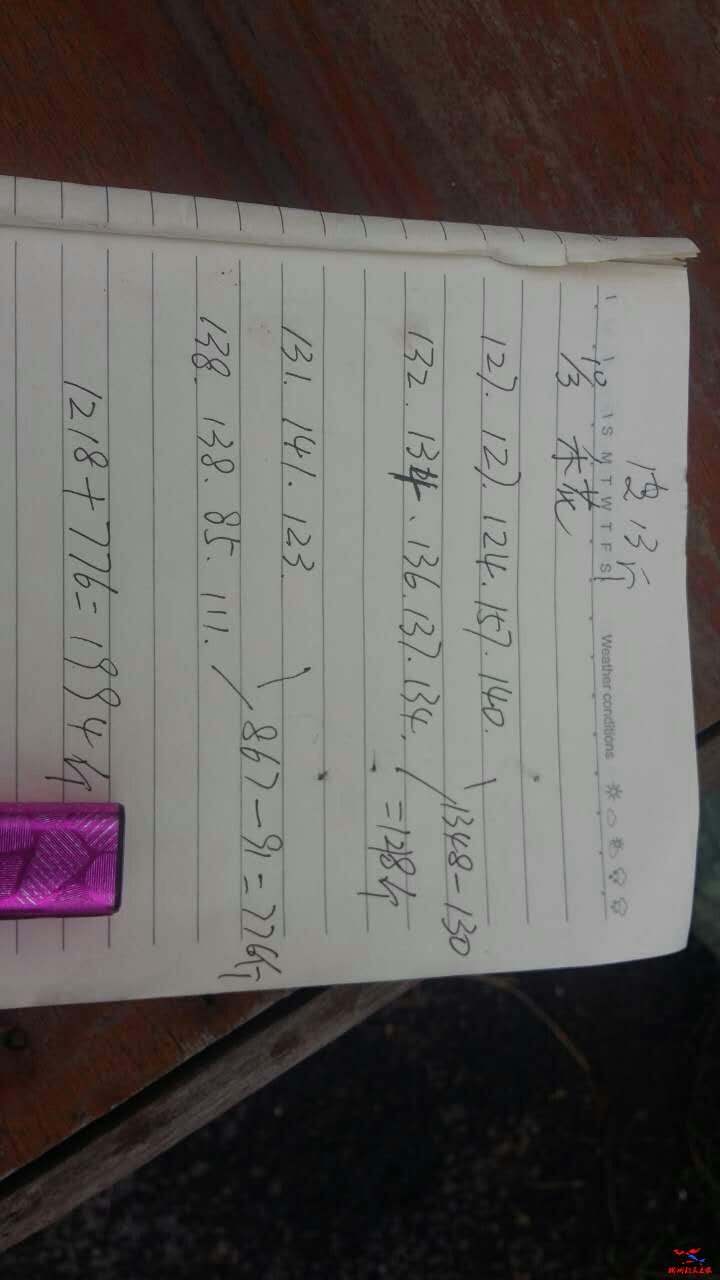 皮13斤
S M T W T F S Weather conditions
10/3
127. 127. 124. 157. 140.
1348-130
132. 134. 136. 137. 134.
=1218斤
131. 141. 123.
867-91=776斤
138. 138. 85. 111.
1218+776=1994斤